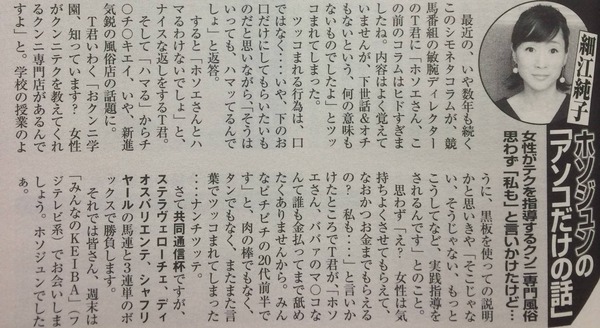 細江純子
ホソジュンの
「アソコだけの話」
女性がテクを指導するクンニ専門風俗
思わず「私も」と言いかけたけど…
最近の、いや数年も続く
このシモネタコラムが、競
馬番組の敏腕ディレクター
のT君に「ホソエさん、こ
の前のコラムはヒドすぎま
したね。内容はよく覚えて
いませんが、下世話＆オチ
もないという、何の意味も
ないものでしたよ」とツッ
コまれてしまった。
ツッコまれる行為は、口
ではなく…いや、下のお
口だけにしてもらいたいも
のだと思いながら「そうは
いっても、ハマッてるんで
しょ」と返答。
すると「ホソエさんとハ
マるわけないでしょ」と、
ナイスな返しをするT君。
そして「ハマる」からチ
○チ○キエイ、いや、新進
気鋭の風俗店の話題に。
T君いわく「おクンニ学
園、知っています？　女性
がクンニテクを教えてくれ
るクンニ専門店があるんで
すよ」と。学校の授業のよ
うに、黒板を使っての説明
かと思いきや「そこじゃな
い、そうじゃない、もっと
こうしてなど、実践指導を
されるんです」とのこと。
思わず「え？　女性は気
持ちよくさせてもらえて、
なおかつお金までもらえる
の？　私も…」と言いか
けたところでT君が、「ホソ
エさん、ババアのマ○コな
んて誰も金払ってまで舐め
たくありませんから。みん
なピチピチの20代前半で
す」と、肉の棒でもなく、
タンでもなく、またまた言
葉でツッコまれてしまった
……ナンチッテッテ。
さて共同通信杯ですが、
ステラヴェローチェ、ディ
オスバリエンテ、シャフリ
ヤールの馬連と3連単のボ
ックスで勝負します。
それでは皆さん、週末は
「みんなのKEIBA」（フ
ジテレビ系）でお会いしま
しょう。ホソジュンでした
ぁ。